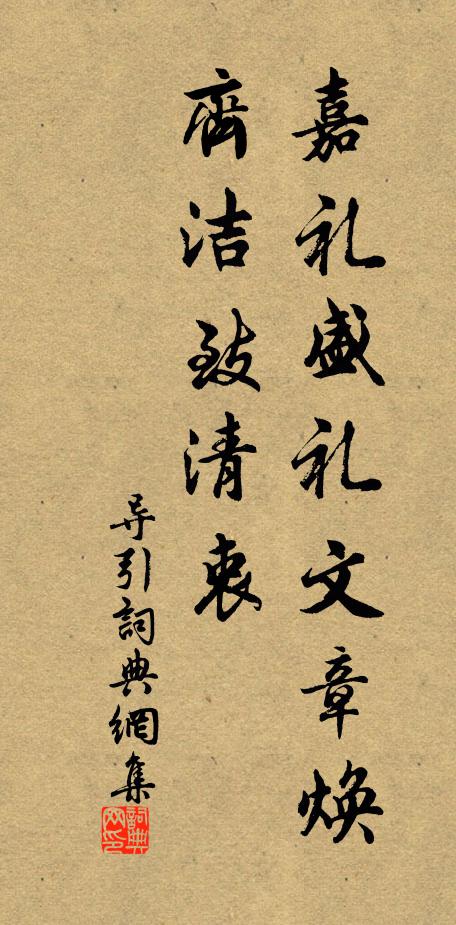 嘉礼盛礼文章焕
齊洁致清衷
导引詞典網集
詞典网印